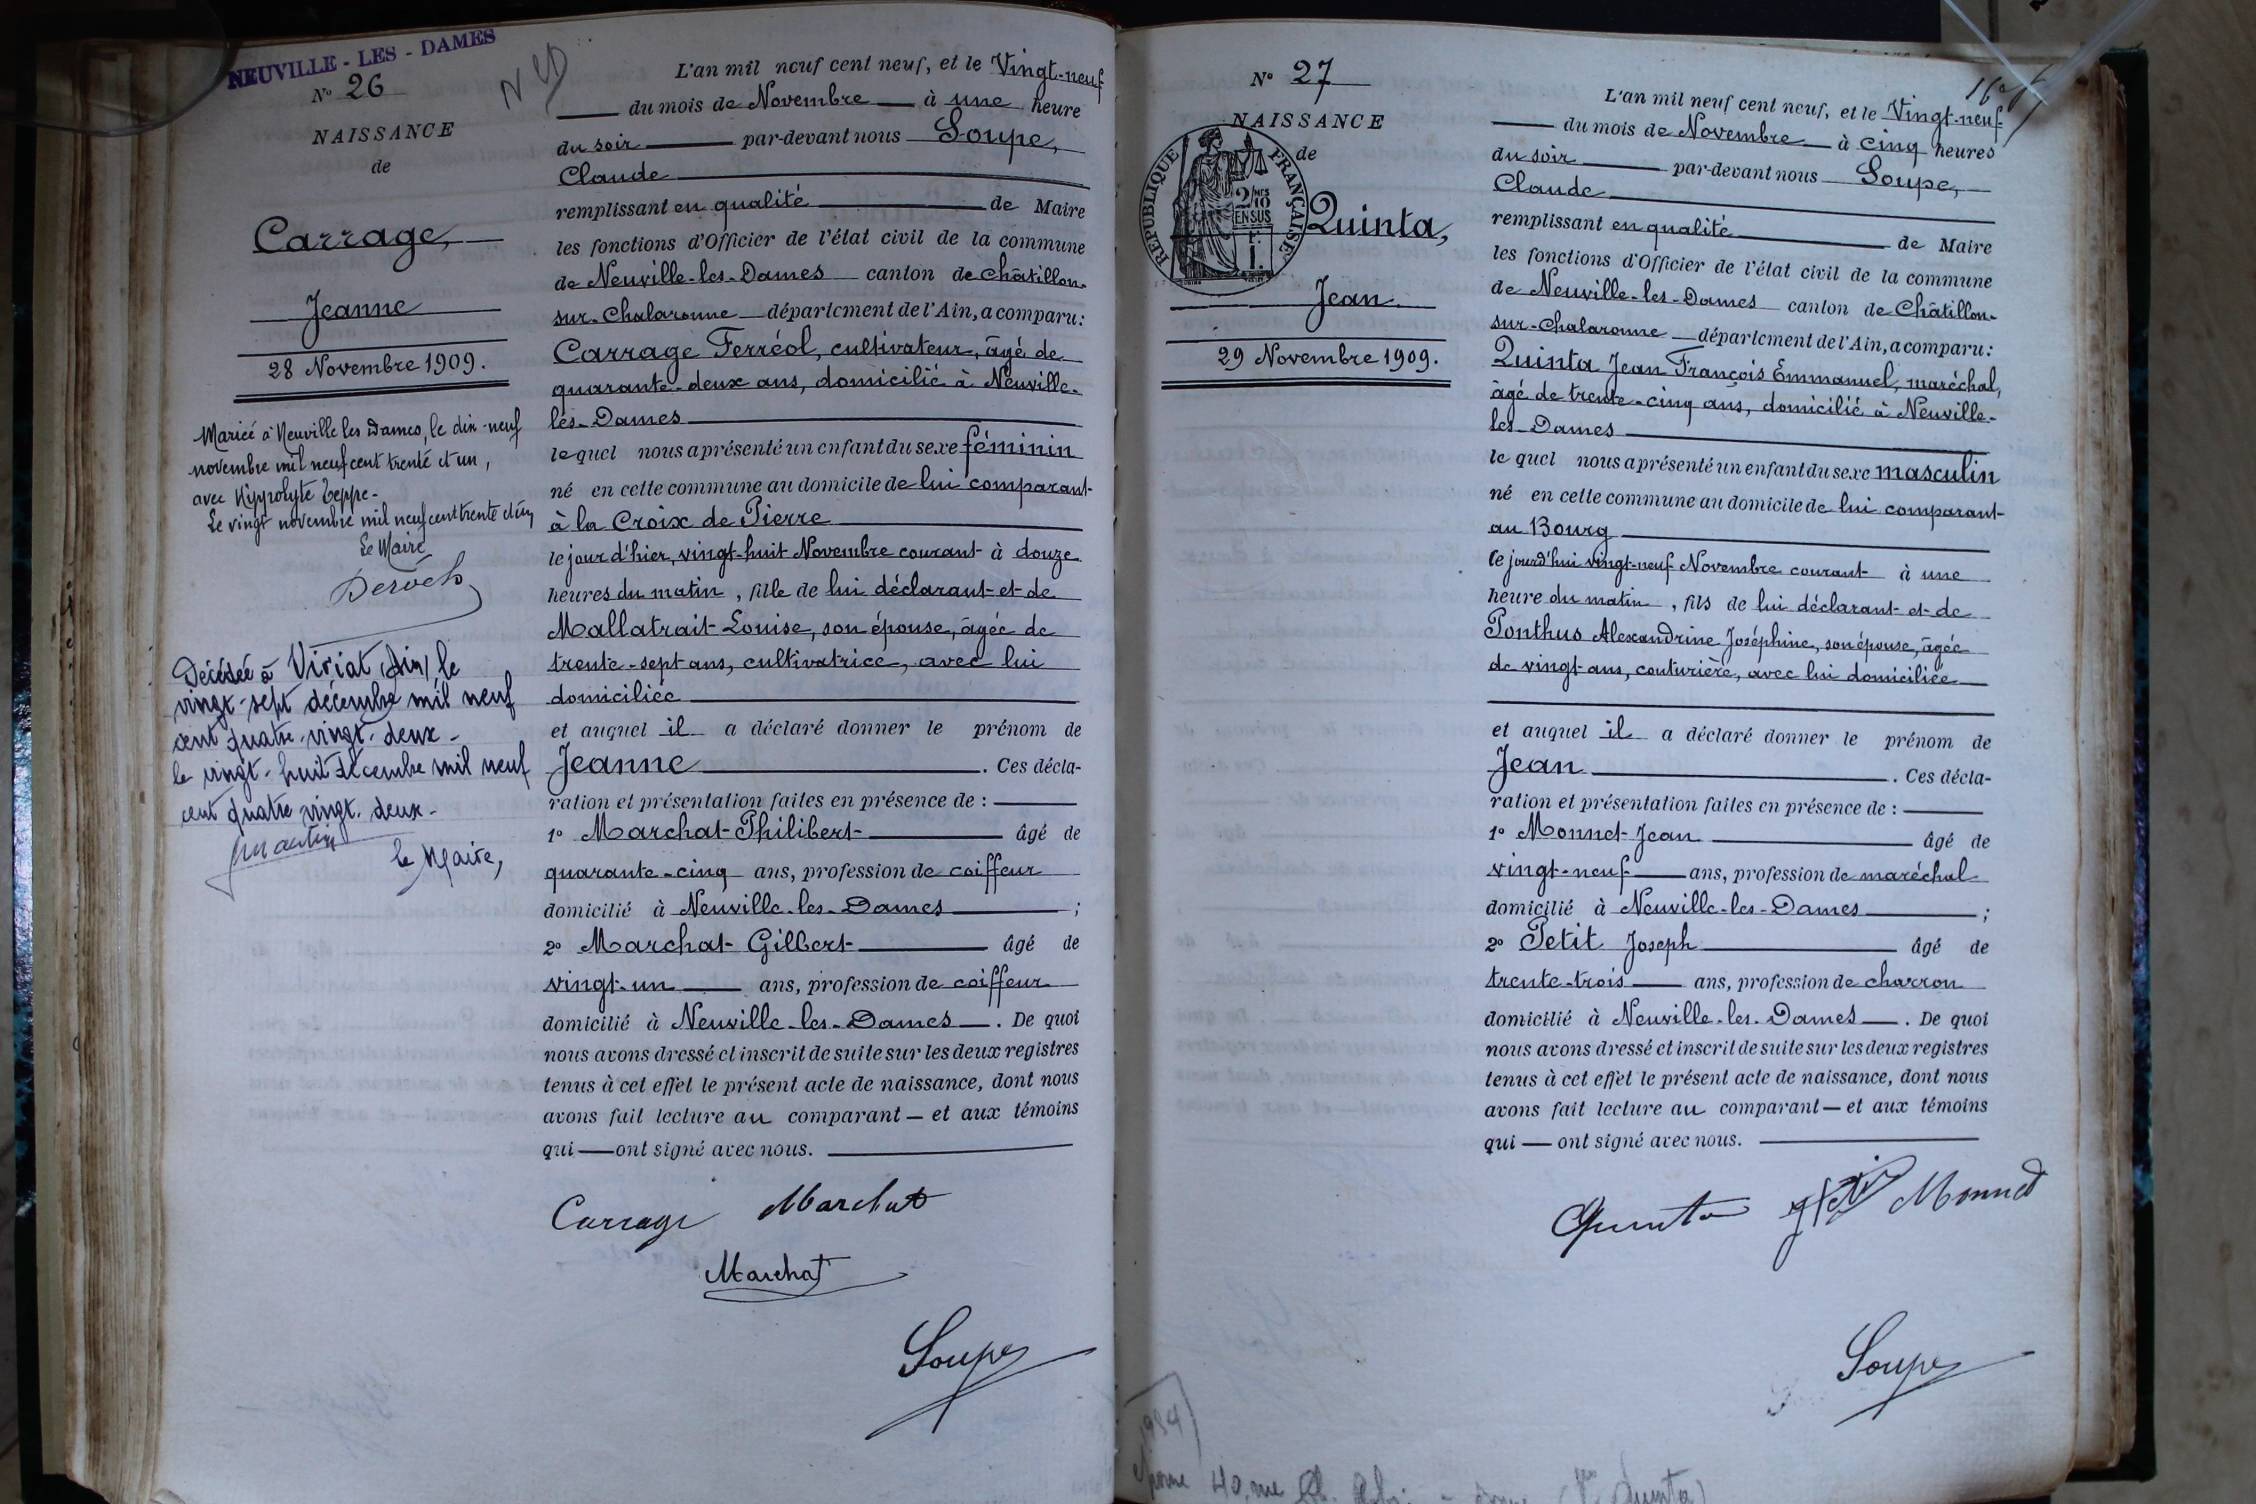 NEUVILLE - LES - DAMES
N° 26
NAISSANCE
de
Carrage,
Jeanne
28 Novembre 1909.
Mariée à Neuville les Dames, le dix-neuf
novembre mil neuf cent trente et un,
avec Hippolyte Teppe.
Le vingt novembre mil neuf cent trente et un
Le Maire
Décédée à Viriat (Ain) le
vingt-sept décembre mil neuf
cent quatre-vingt-deux-
le vingt-huit décembre mil neuf
cent quatre vingt-deux-
le Maire,
L'an mil neuf cent neuf, et le Vingt-neuf
du mois de Novembre à une heure
du soir par-devant nous Soupe,
Claude
remplissant en qualité de Maire
les fonctions d'Officier de l'état civil de la commune
de Neuville-les-Dames canton de Châtillon-
sur-Chalaronne département de l'Ain, a comparu:
Carrage Ferréol, cultivateur, âgé de
quarante-deux ans, domicilié à Neuville-
les-Dames
lequel nous a présenté un enfant du sexe féminin
né en cette commune au domicile de lui comparant
à la Croix de Pierre
le jour d'hier, vingt-huit Novembre courant à douze
heures du matin, fille de lui déclarant et de
Mallatrait Louise, son épouse, âgée de
trente-sept ans, cultivatrice, avec lui
domiciliée
et auquel il a déclaré donner le prénom de
Jeanne. Ces décla-
ration et présentation faites en présence de :
1° Marchat Philibert âgé de
quarante-cinq ans, profession de coiffeur
domicilié à Neuville-les-Dames ;
2° Marchat Gilbert âgé de
vingt-un ans, profession de coiffeur
domicilié à Neuville-les-Dames. De quoi
nous avons dressé et inscrit de suite sur les deux registres
tenus à cet effet le présent acte de naissance, dont nous
avons fait lecture au comparant — et aux témoins
qui — ont signé avec nous.
Carrage Marchat
Marchat
Soupe
N° 27
NAISSANCE
de
RÉPUBLIQUE FRANÇAISE
Quinta,
Jean.
29 Novembre 1909.
L'an mil neuf cent neuf, et le Vingt-neuf
du mois de Novembre à cinq heures
du soir par-devant nous Soupe,
Claude
remplissant en qualité de Maire
les fonctions d'Officier de l'état civil de la commune
de Neuville-les-Dames canton de Châtillon-
sur-Chalaronne département de l'Ain, a comparu:
Quinta Jean François Emmanuel, maréchal,
âgé de trente-cinq ans, domicilié à Neuville-
les-Dames
lequel nous a présenté un enfant du sexe masculin
né en cette commune au domicile de lui comparant
au Bourg
le jourd'hui vingt-neuf Novembre courant à une
heure du matin, fils de lui déclarant et de
Ponthus Alexandrine Joséphine, son épouse, âgée
de vingt ans, couturière, avec lui domiciliée
et auquel il a déclaré donner le prénom de
Jean. Ces décla-
ration et présentation faites en présence de :
1° Monnet Jean âgé de
vingt-neuf ans, profession de maréchal
domicilié à Neuville-les-Dames ;
2° Petit Joseph âgé de
trente-trois ans, profession de charron
domicilié à Neuville-les-Dames. De quoi
nous avons dressé et inscrit de suite sur les deux registres
tenus à cet effet le présent acte de naissance, dont nous
avons fait lecture au comparant — et aux témoins
qui — ont signé avec nous.
Quinta Petit Monnet
Soupe